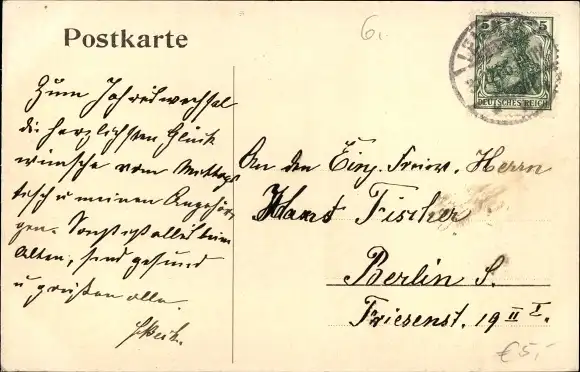 Postkarte
6.
5 5
DEUTSCHES REICH
Zum Jahreswechsel
die herzlichsten Glück
wünsche vom Mittags
tisch u meinen Angehöri
gen. Sonst ist alles beim
Alten, sind gesund
u grüßen alle.
An den Einj. Freiw. Herrn
Hans Fischer
Berlin S.
Friesenst. 19 II I.
€ 5,-